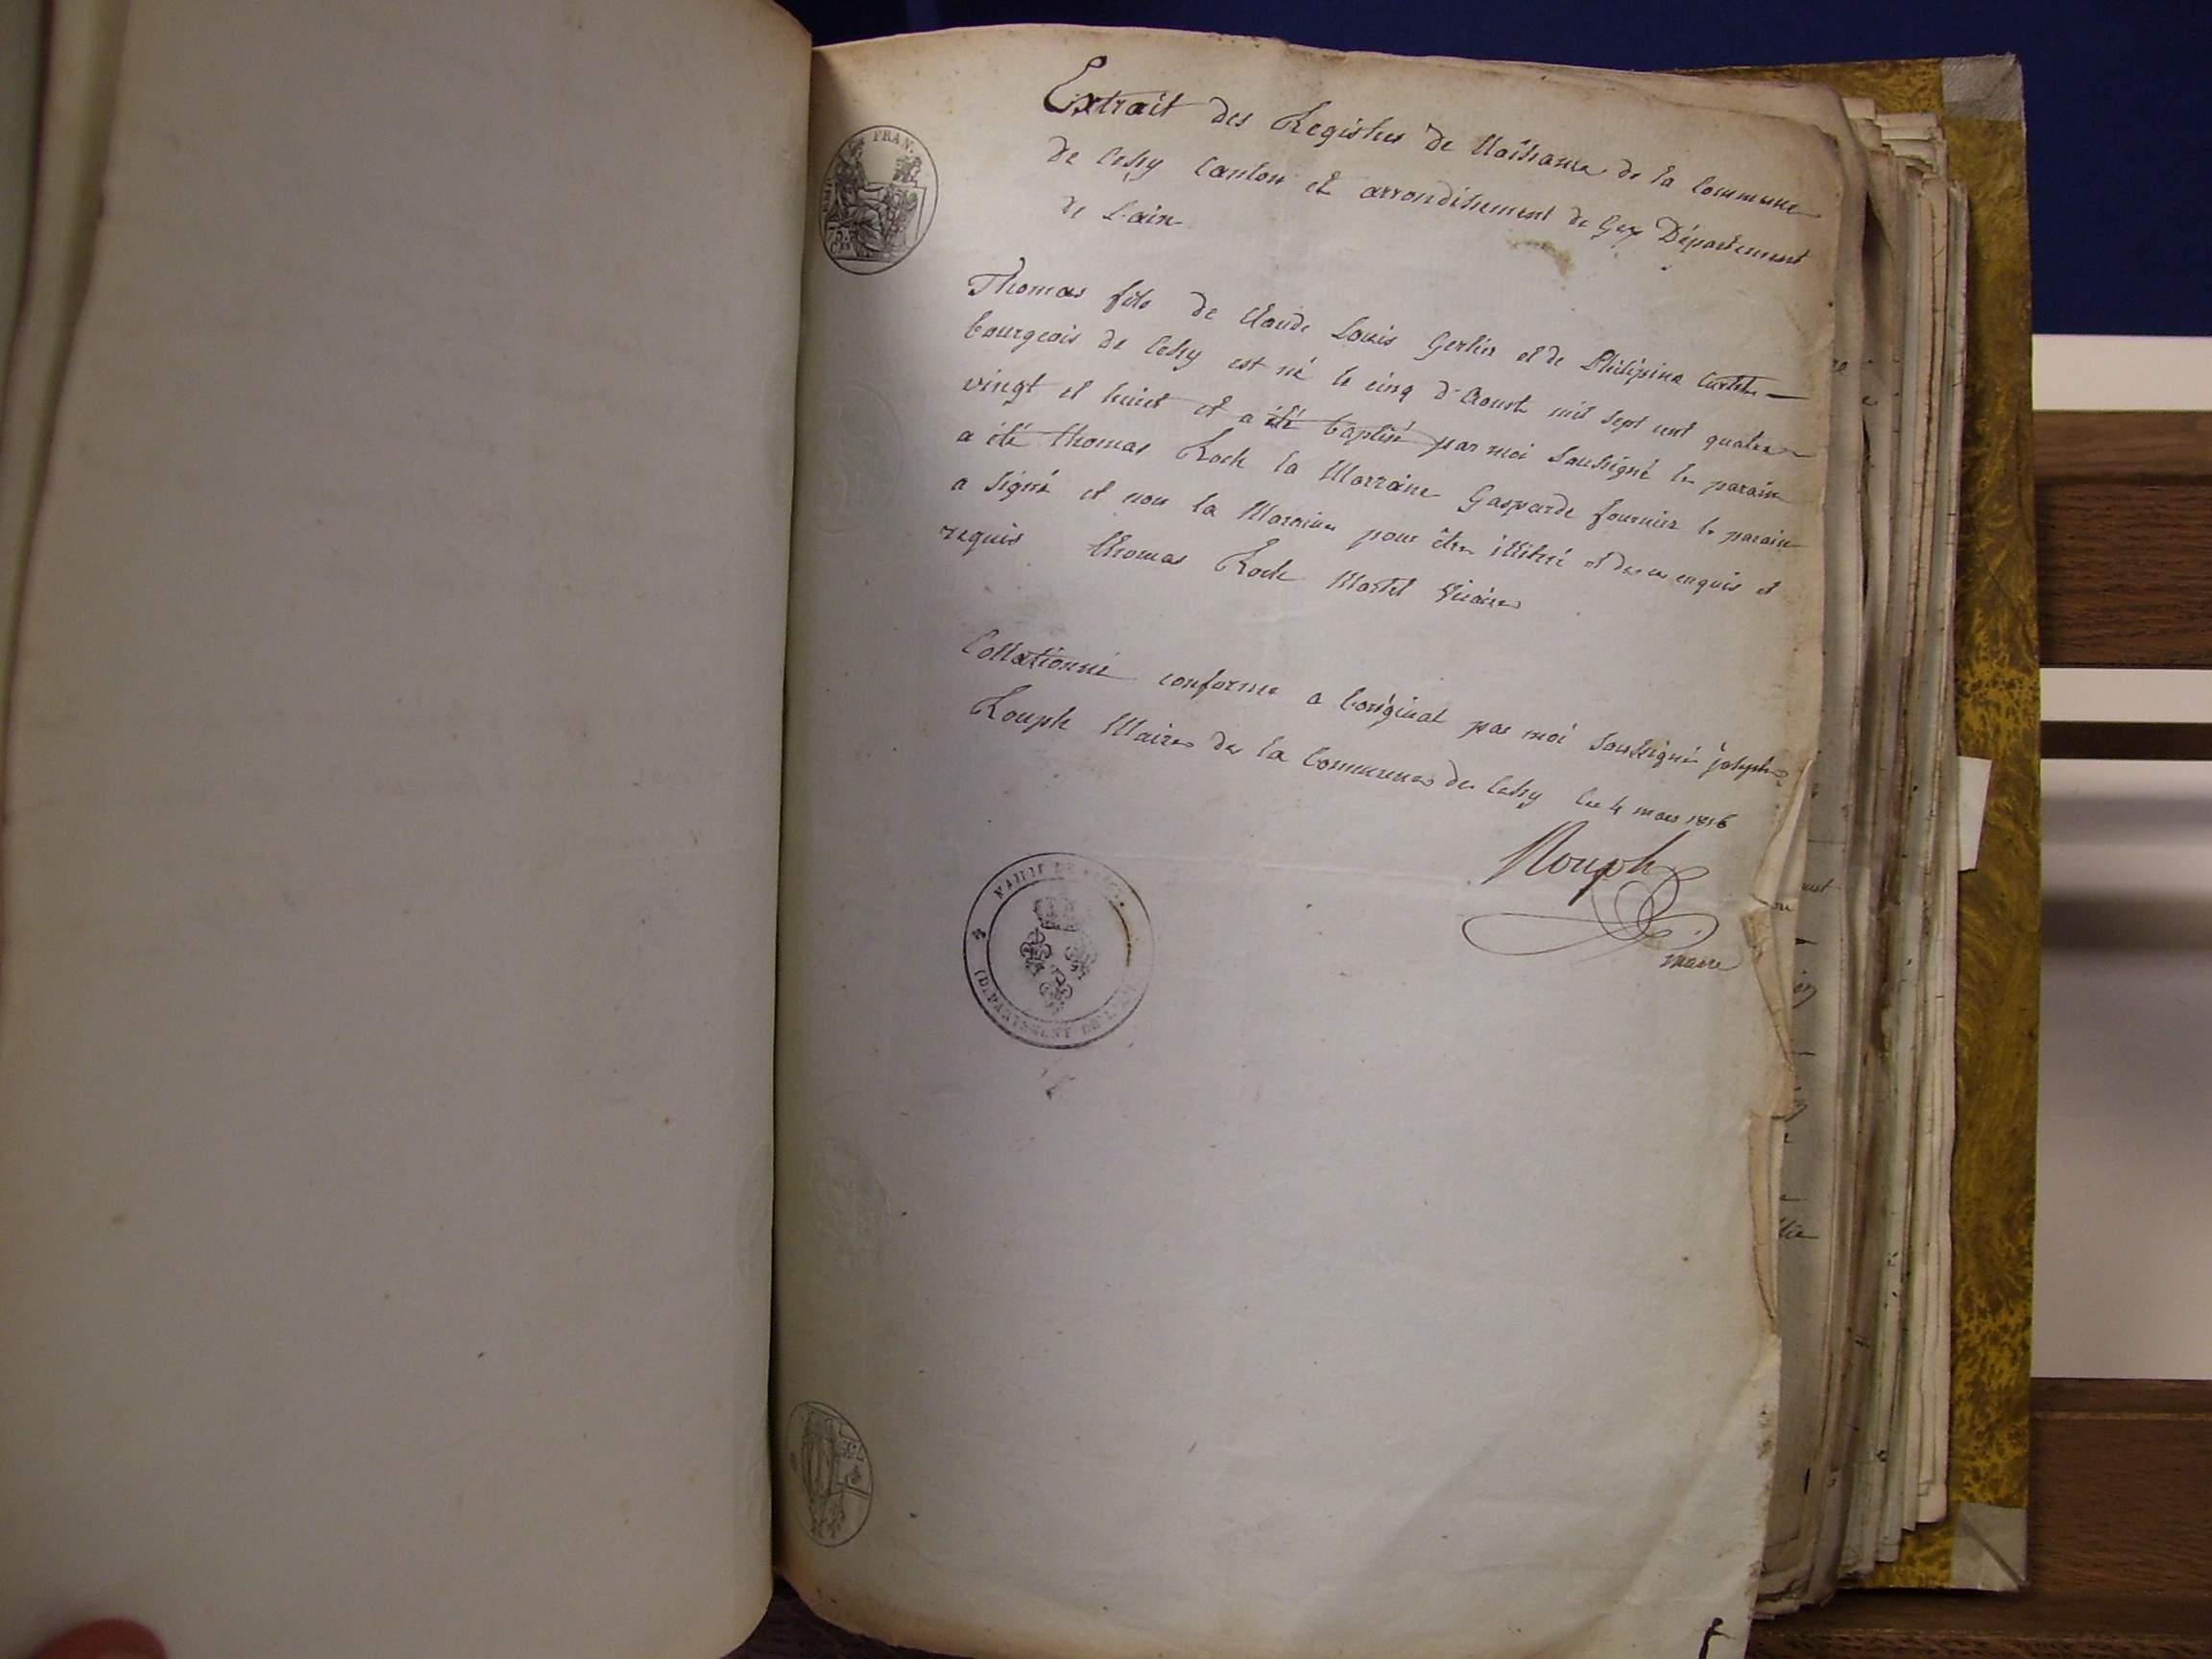 FRAN.
Extrait des Registres de Naissance de la Commune
de Cessy Canton et arrondissement de Gex Département
de L'ain
Thomas fils de Claude Louis Gerlier et de Philipine Curtet
bourgeois de Cessy est né le cinq d'Aoust mil sept cent quatre
vingt et huict et a été baptisé par moi soussigné le parain
a été thomas Roch la Marraine Gasparde fournier le parain
a signé et non la Maraine pour être illitéré et de ce enquis et
requis thomas Roch Martel Vicaire
Collationné conforme a l'original par moi soussigné joseph
Rouph Maire de la Commune de Cessy le 4 mars 1816
Rouph
maire
MAIRIE DE
DEPARTEMENT DE L'